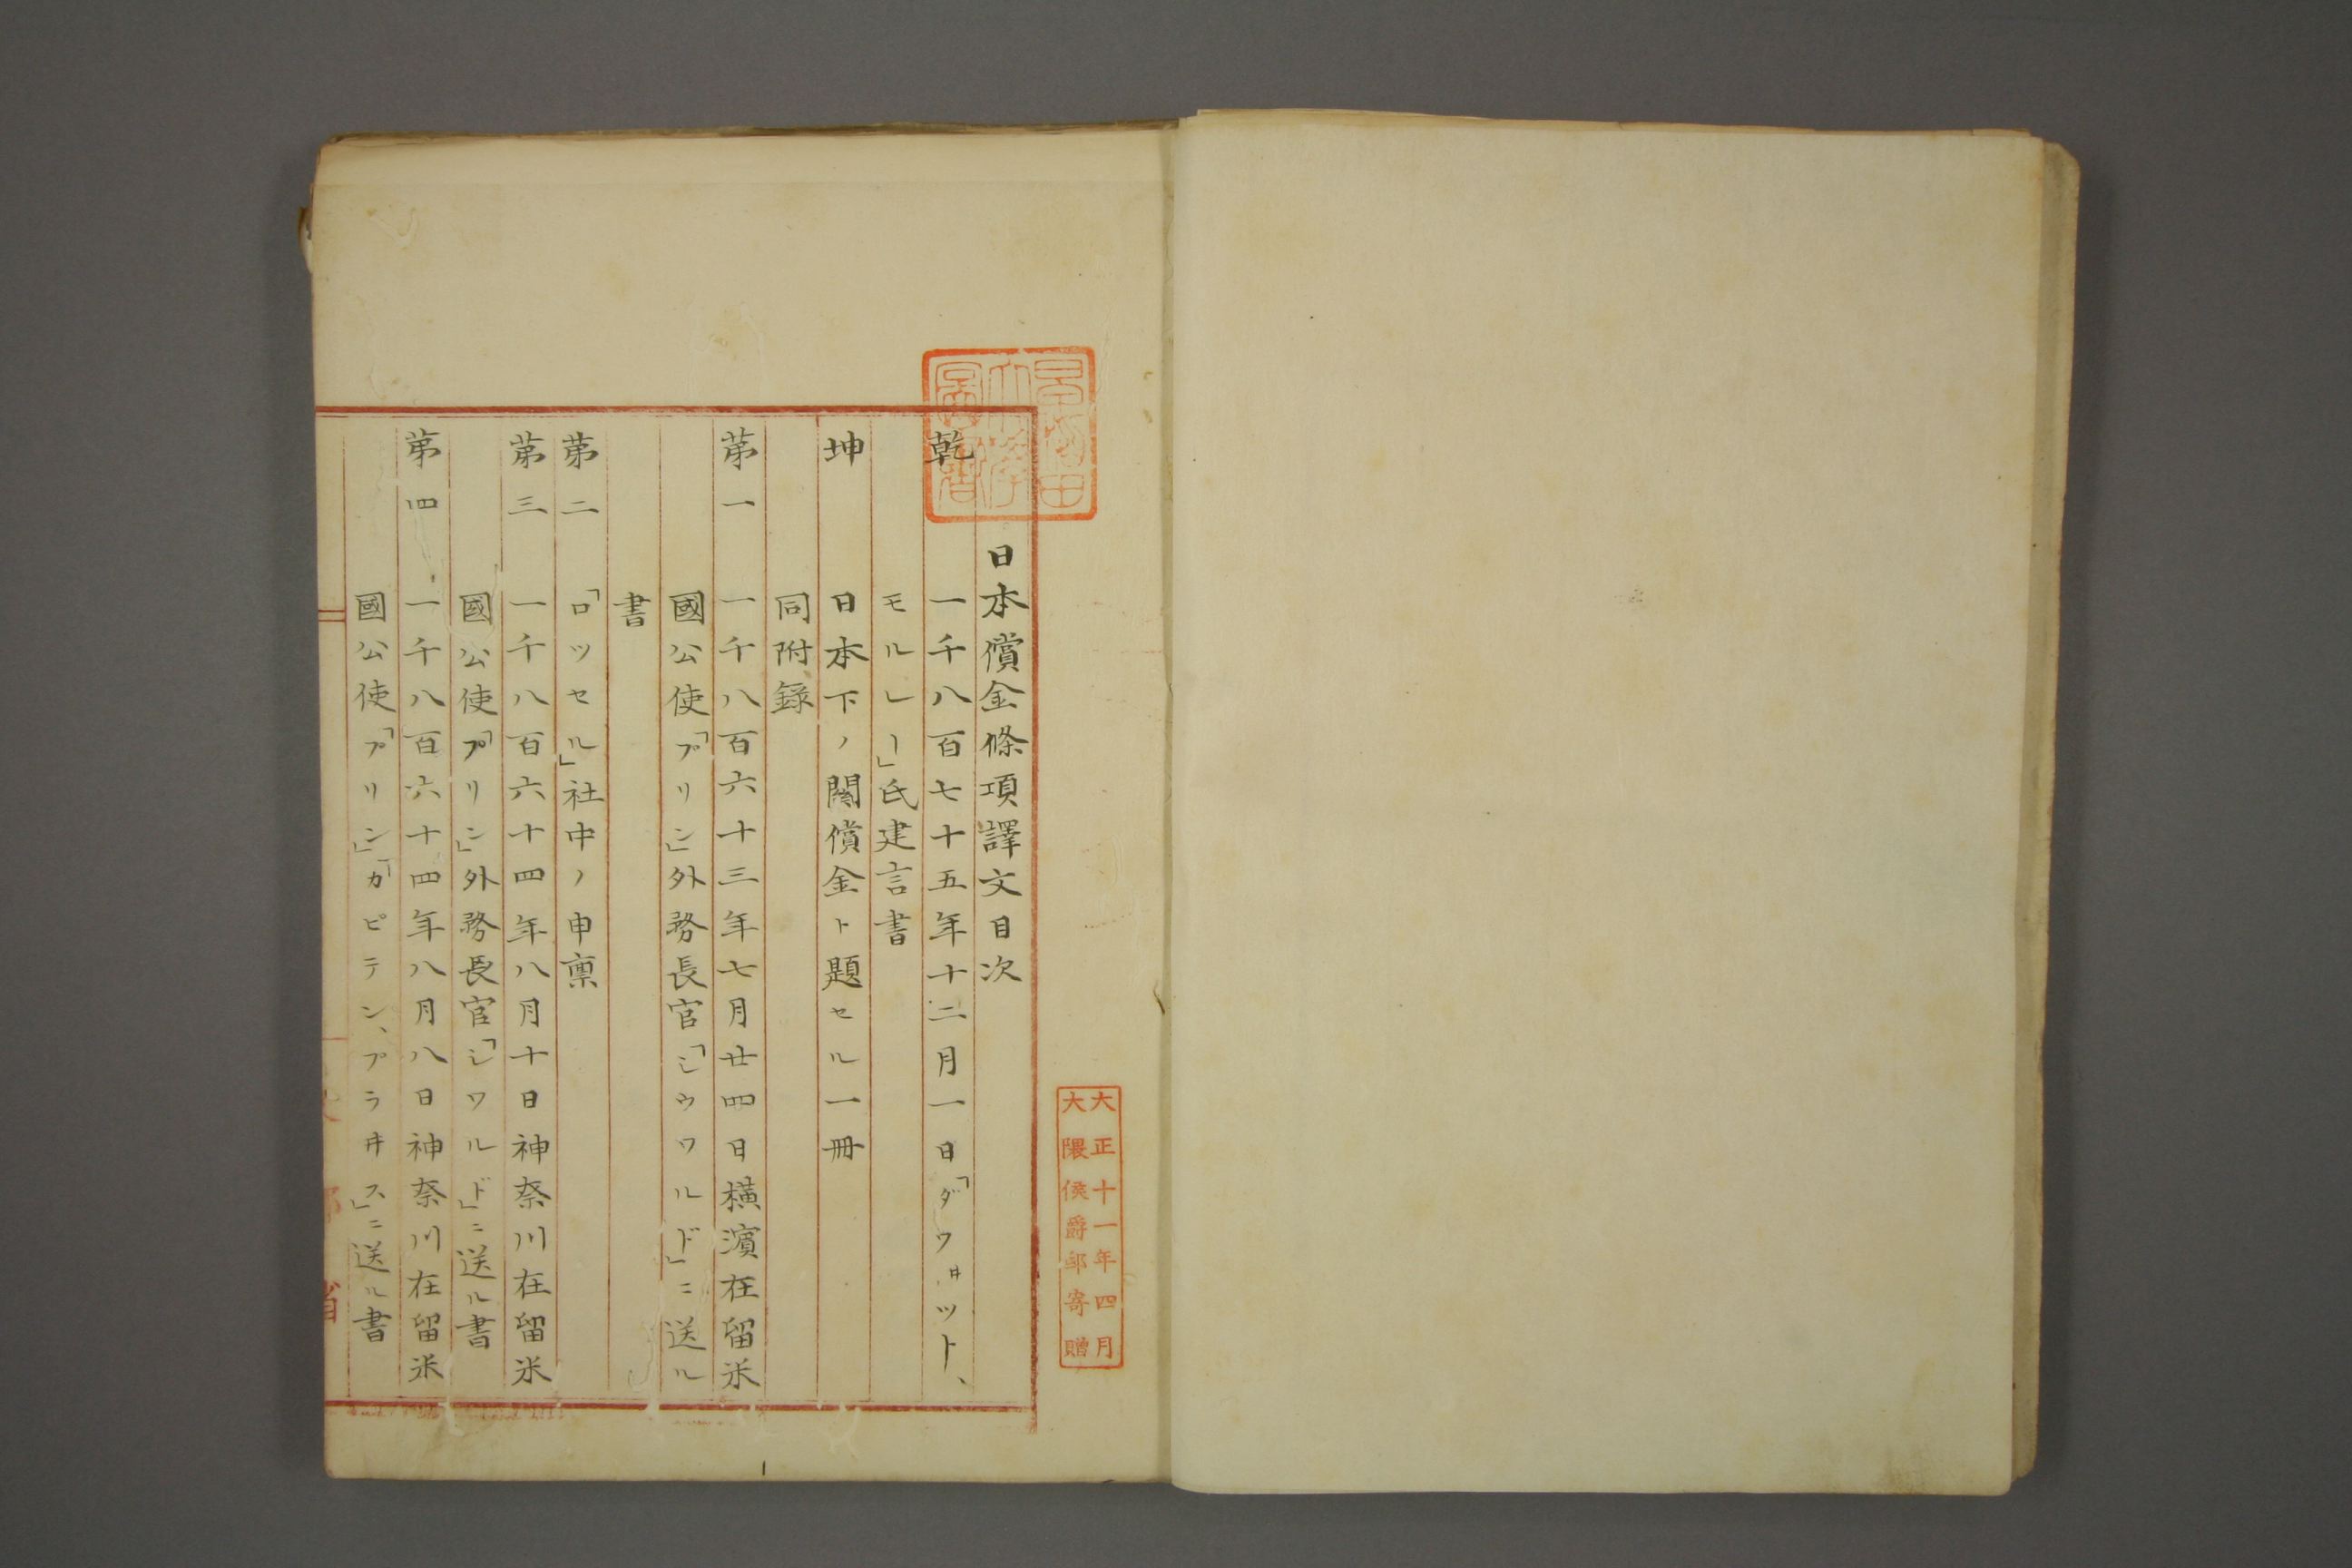 日本償金條項譯文目次
乾 一千八百七十五年十二月一日「ダヴヰット、
モルレー」氏建言書
坤 日本下ノ関償金ト題セル一冊
同附錄
第一 一千八百六十三年七月廿四日橫濱在留米
國公使「プリン」外務長官「シウワルド」ニ送ル
書
第二 「ロッセル」社中ノ申稟
第三 一千八百六十四年八月十日神奈川在留米
國公使「プリン」外務長官「シワルド」ニ送ル書
第四 一千八百六十四年八月八日神奈川在留米
國公使「プリン」「カピテン、プライス」ニ送ル書
早稲田
大學
圖書
大正十一年四月
大隈侯爵邸寄贈